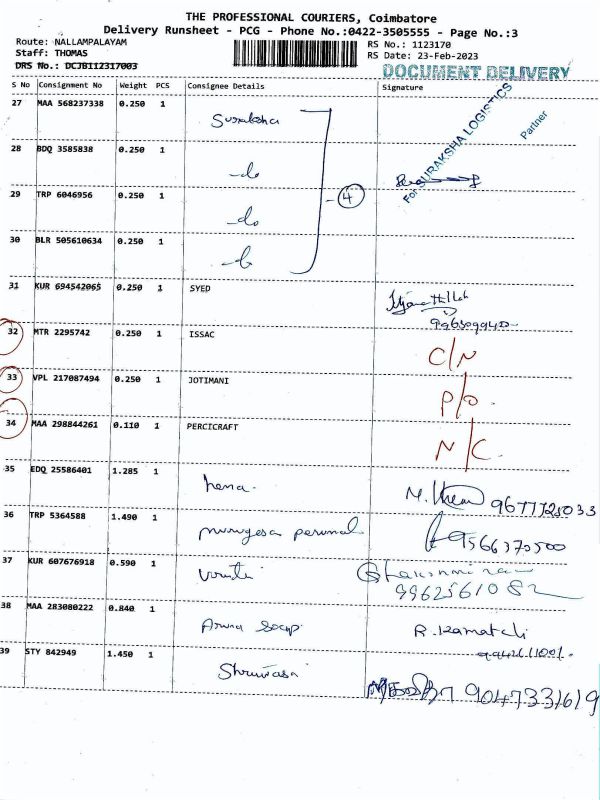 THE PROFESSIONAL COURIERS, Coimbatore
Delivery Runsheet - PCG - Phone No.:0422-3505555 - Page No.:3
Route: NALLAMPALAYAM
Staff: THOMAS
DRS No.: DCJB112317003
RS No.: 1123170
RS Date: 23-Feb-2023
DOCUMENT DELIVERY
S No Consignment No Weight PCS Consignee Details Signature
27 MAA 568237338 0.250 1 Suraksha
For SURAKSHA LOGISTICS
Partner
28 BDQ 3585838 0.250 1 -do
29 TRP 6046956 0.250 1 -do
4
30 BLR 505610634 0.250 1
31 KUR 694542065 0.250 1 SYED
32 MTR 2295742 0.250 1 ISSAC C/N
33 VPL 217087494 0.250 1 JOTIMANI P/O
34 MAA 298844261 0.110 1 PERCICRAFT N/C
35 EDQ 25586401 1.285 1 hema. 9677725033
36 TRP 5364588 1.490 1 murugesa perumal 9566370500
37 KUR 607676918 0.590 1 9962561082
38 MAA 283080222 0.840 1 Aruna Soap R. Kamatchi
39 STY 842949 1.450 1 9047331619